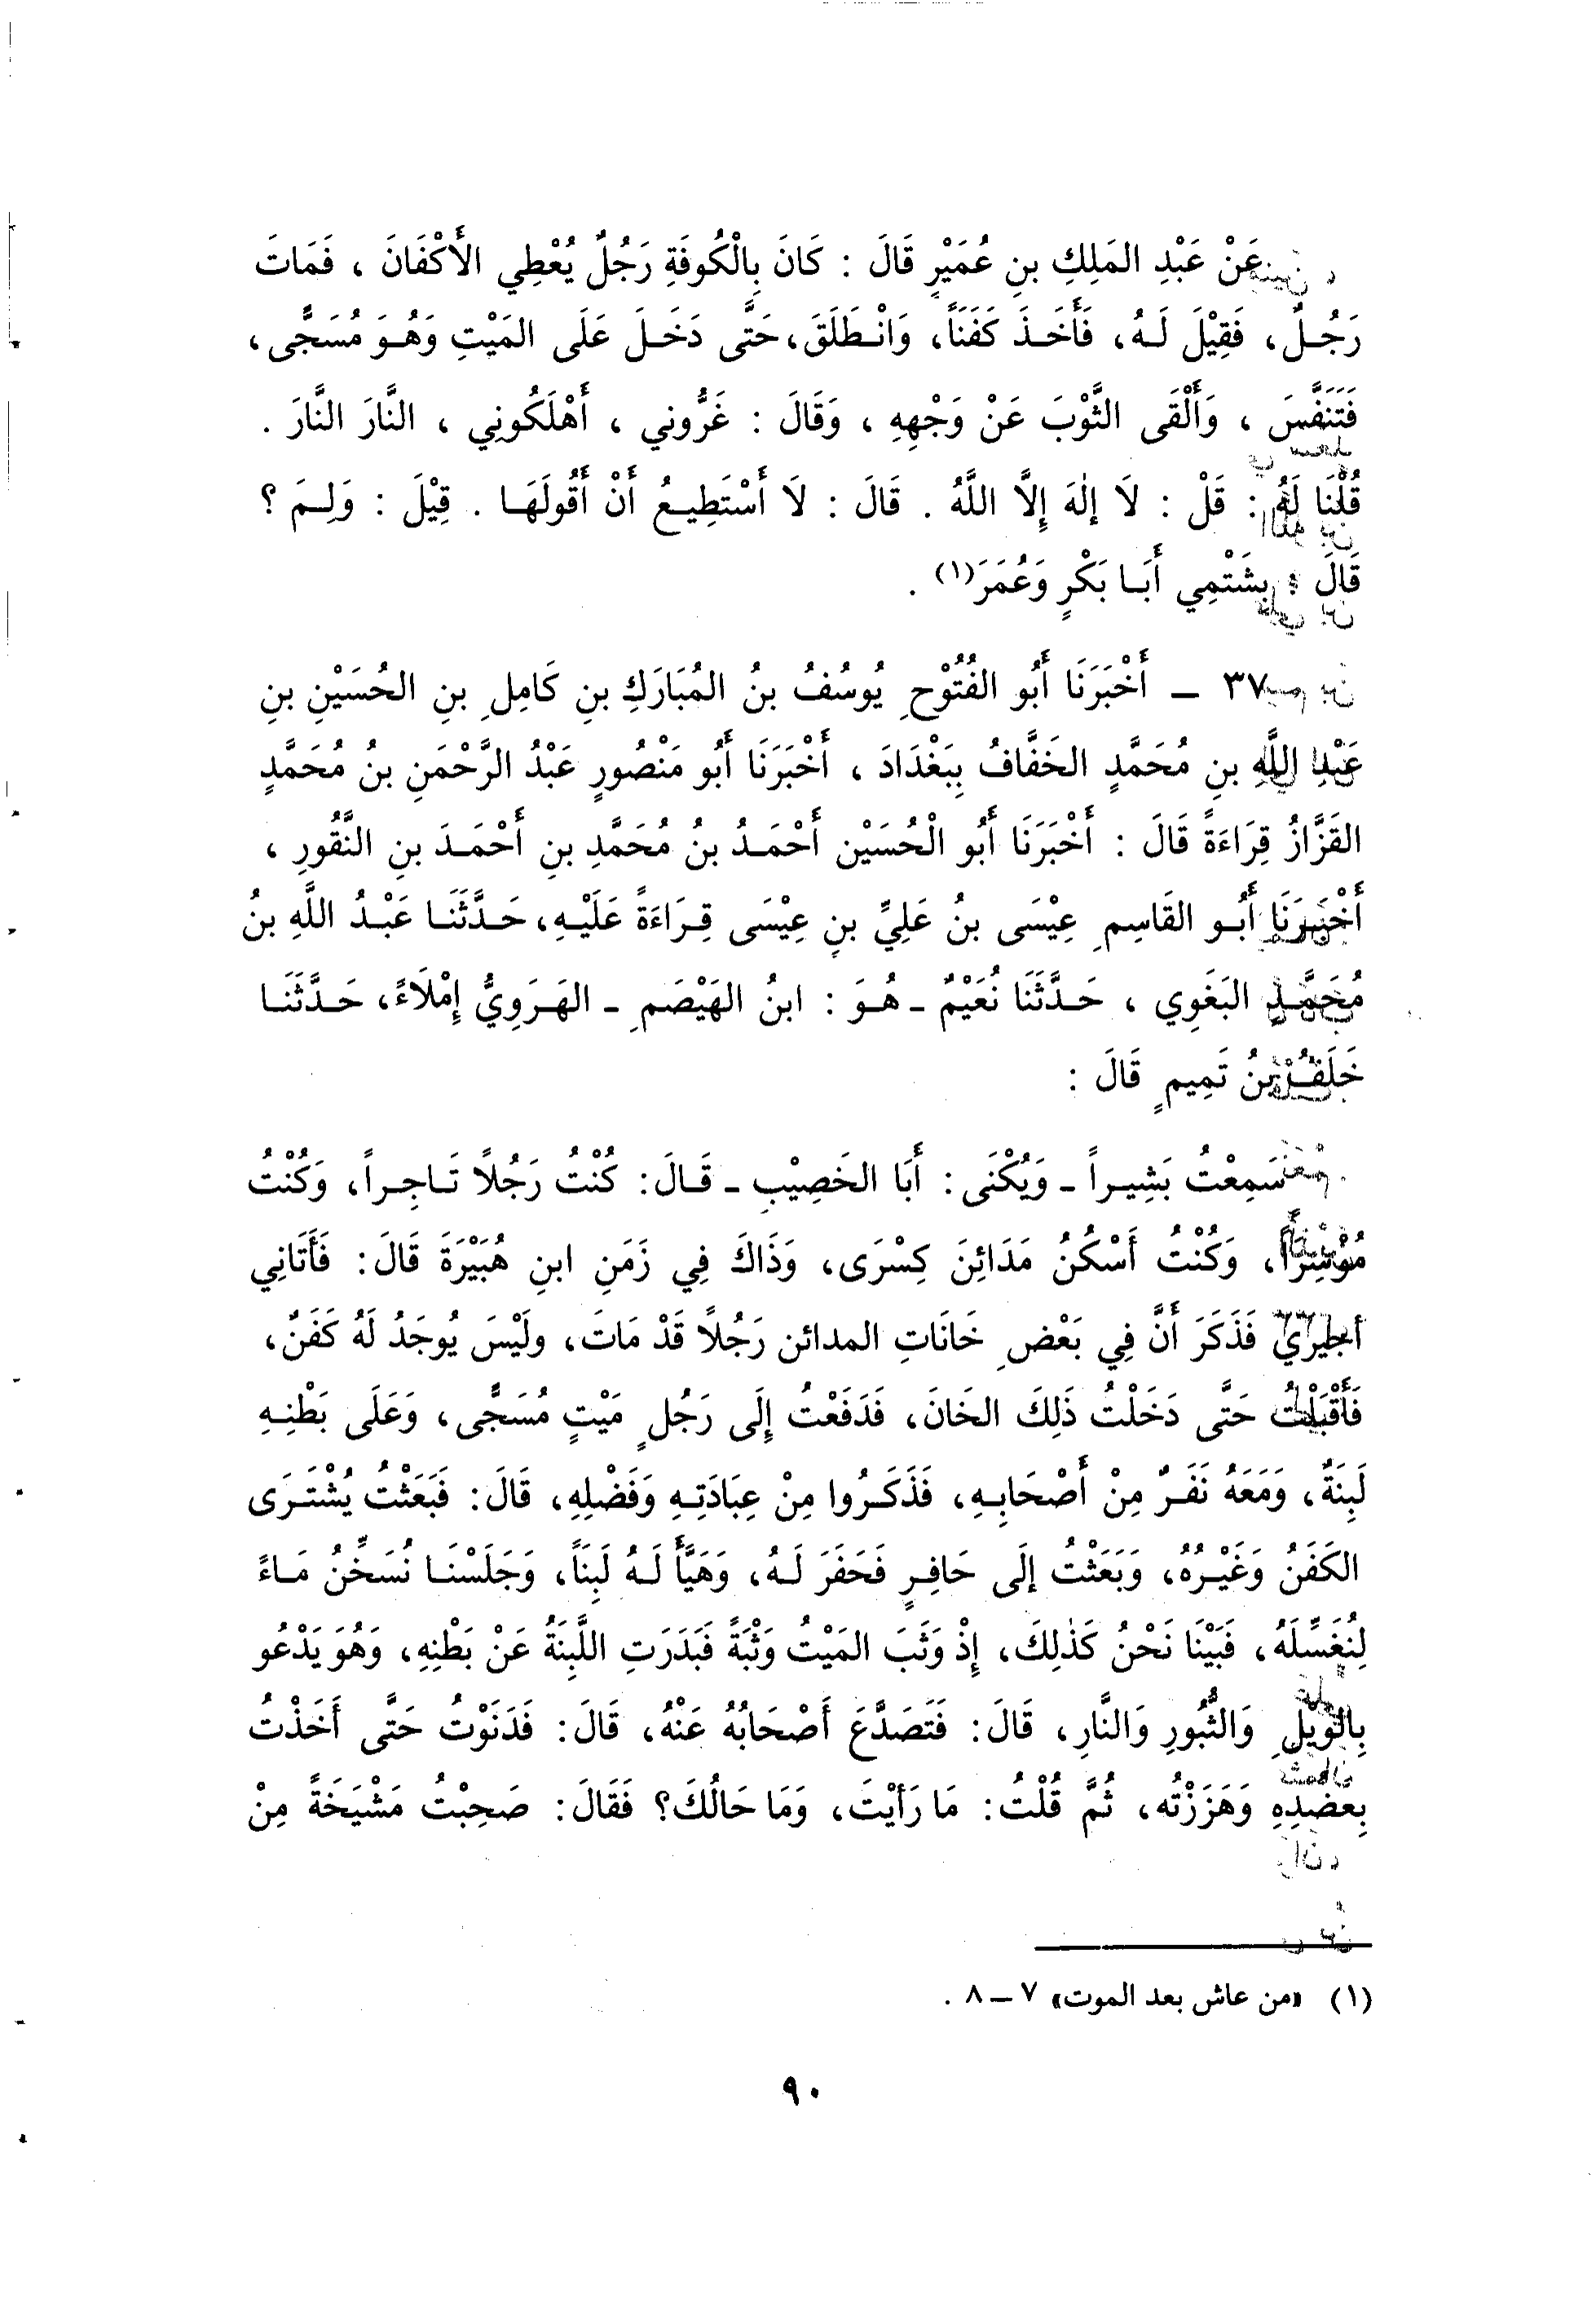 عَنْ عَبْدِ المَلِكِ بنِ عُمَيْرٍ قَالَ : كَانَ بِالْكُوفَةِ رَجُلٌ يُعْطِي الأَكْفَانَ ، فَمَاتَ
رَجُلٌ، فَقِيْلَ لَهُ، فَأَخَذَ كَفَنَاً، وَانْطَلَقَ، حَتَّى دَخَلَ عَلَى المَيْتِ وَهُوَ مُسَجًّى،
فَتَنَفَّسَ ، وَأَلْقَى الثَّوْبَ عَنْ وَجْهِهِ ، وَقَالَ : غَرُّوني ، أَهْلَكُونِي ، النَّارَ النَّارَ .
قُلْنَا لَهُ : قَلْ : لَا إلٰهَ إِلَّا اللَّهُ . قَالَ : لَا أَسْتَطِيعُ أَنْ أَقُولَهَا . قِيْلَ : وَلِمَ ؟
قَالَ : بِشَتْمِي أَبَا بَكْرٍ وَعُمَرَ(١) .
٣٧ ــ أَخْبَرَنَا أَبُو الفُتُوْحِ يُوسُفُ بنُ المُبَارَكِ بنِ كَامِلِ بنِ الحُسَيْنِ بنِ
عَبْدِ اللَّهِ بنِ مُحَمَّدٍ الخَفَّافُ بِبَغْدَادَ ، أَخْبَرَنَا أَبُو مَنْصُورٍ عَبْدُ الرَّحْمَنِ بنُ مُحَمَّدٍ
القَزَّازُ قِرَاءَةً قَالَ : أَخْبَرَنَا أَبُو الْحُسَيْن أَحْمَدُ بنُ مُحَمَّدِ بنِ أَحْمَدَ بنِ النَّقُورِ ،
أَخْبَرَنَا أَبُو القَاسِمِ عِيْسَى بنُ عَلِيِّ بنِ عِيْسَى قِرَاءَةً عَلَيْهِ، حَدَّثَنَا عَبْدُ اللَّهِ بنُ
مُحَمَّدٍ البَغَوِي ، حَدَّثَنَا نُعَيْمٌ ـ هُوَ : ابنُ الهَيْصَمِ ـ الهَرَوِيُّ إِمْلَاءً، حَدَّثَنَا
خَلَفُ بنُ تَمِيمٍ قَالَ :
سَمِعْتُ بَشِيراً ـ وَيُكْنَى : أَبَا الخَصِيْبِ ـ قَالَ: كُنْتُ رَجُلاً تَاجِراً، وَكُنْتُ
مُوْسِرَاً، وَكُنْتُ أَسْكُنُ مَدَائِنَ كِسْرَى، وَذَاكَ فِي زَمَنِ ابنِ هُبَيْرَةَ قَالَ: فَأَتَانِي
أجِيْرِيْ فَذَكَرَ أَنَّ فِي بَعْضِ خَانَاتِ المدائن رَجُلاً قَدْ مَاتَ، ولَيْسَ يُوجَدُ لَهُ كَفَنٌ،
فَأَقْبَلْتُ حَتَّى دَخَلْتُ ذَلِكَ الخَانَ، فَدَفَعْتُ إِلَى رَجُلٍ مَيْتٍ مُسَجًّى، وَعَلَى بَطْنِهِ
لَبِنَةٌ، وَمَعَهُ نَفَرٌ مِنْ أَصْحَابِهِ، فَذَكَرُوا مِنْ عِبَادَتِهِ وَفَضْلِهِ، قَالَ: فَبَعَثْتُ يُشْتَرَى
الكَفَنُ وَغَيْرُهُ، وَبَعَثْتُ إلَى حَافِرٍ فَحَفَرَ لَهُ، وَهَيَّأَ لَهُ لَبِنَاً، وَجَلَسْنَا نُسَخِّنُ مَاءً
لِنُغَسِّلَهُ، فَبَيْنَا نَحْنُ كَذٰلِكَ، إِذْ وَثَبَ المَيْتُ وَثْبَةً فَبَدَرَتِ اللَّبِنَةُ عَنْ بَطْنِهِ، وَهُوَ يَدْعُو
بِالْوَيْلِ وَالثُّبُورِ وَالنَّارِ، قَالَ: فَتَصَدَّعَ أَصْحَابُهُ عَنْهُ، قَالَ: فَدَنَوْتُ حَتَّى أَخَذْتُ
بِعضُدِهِ وَهَزَزْتُه، ثُمَّ قُلْتُ: مَا رَأيْتَ، وَمَا حَالُكَ؟ فَقَالَ: صَحِبْتُ مَشْيَخَةً مِنْ
(١) «من عاش بعد الموت» ٧ ــ ٨ .
٩٠